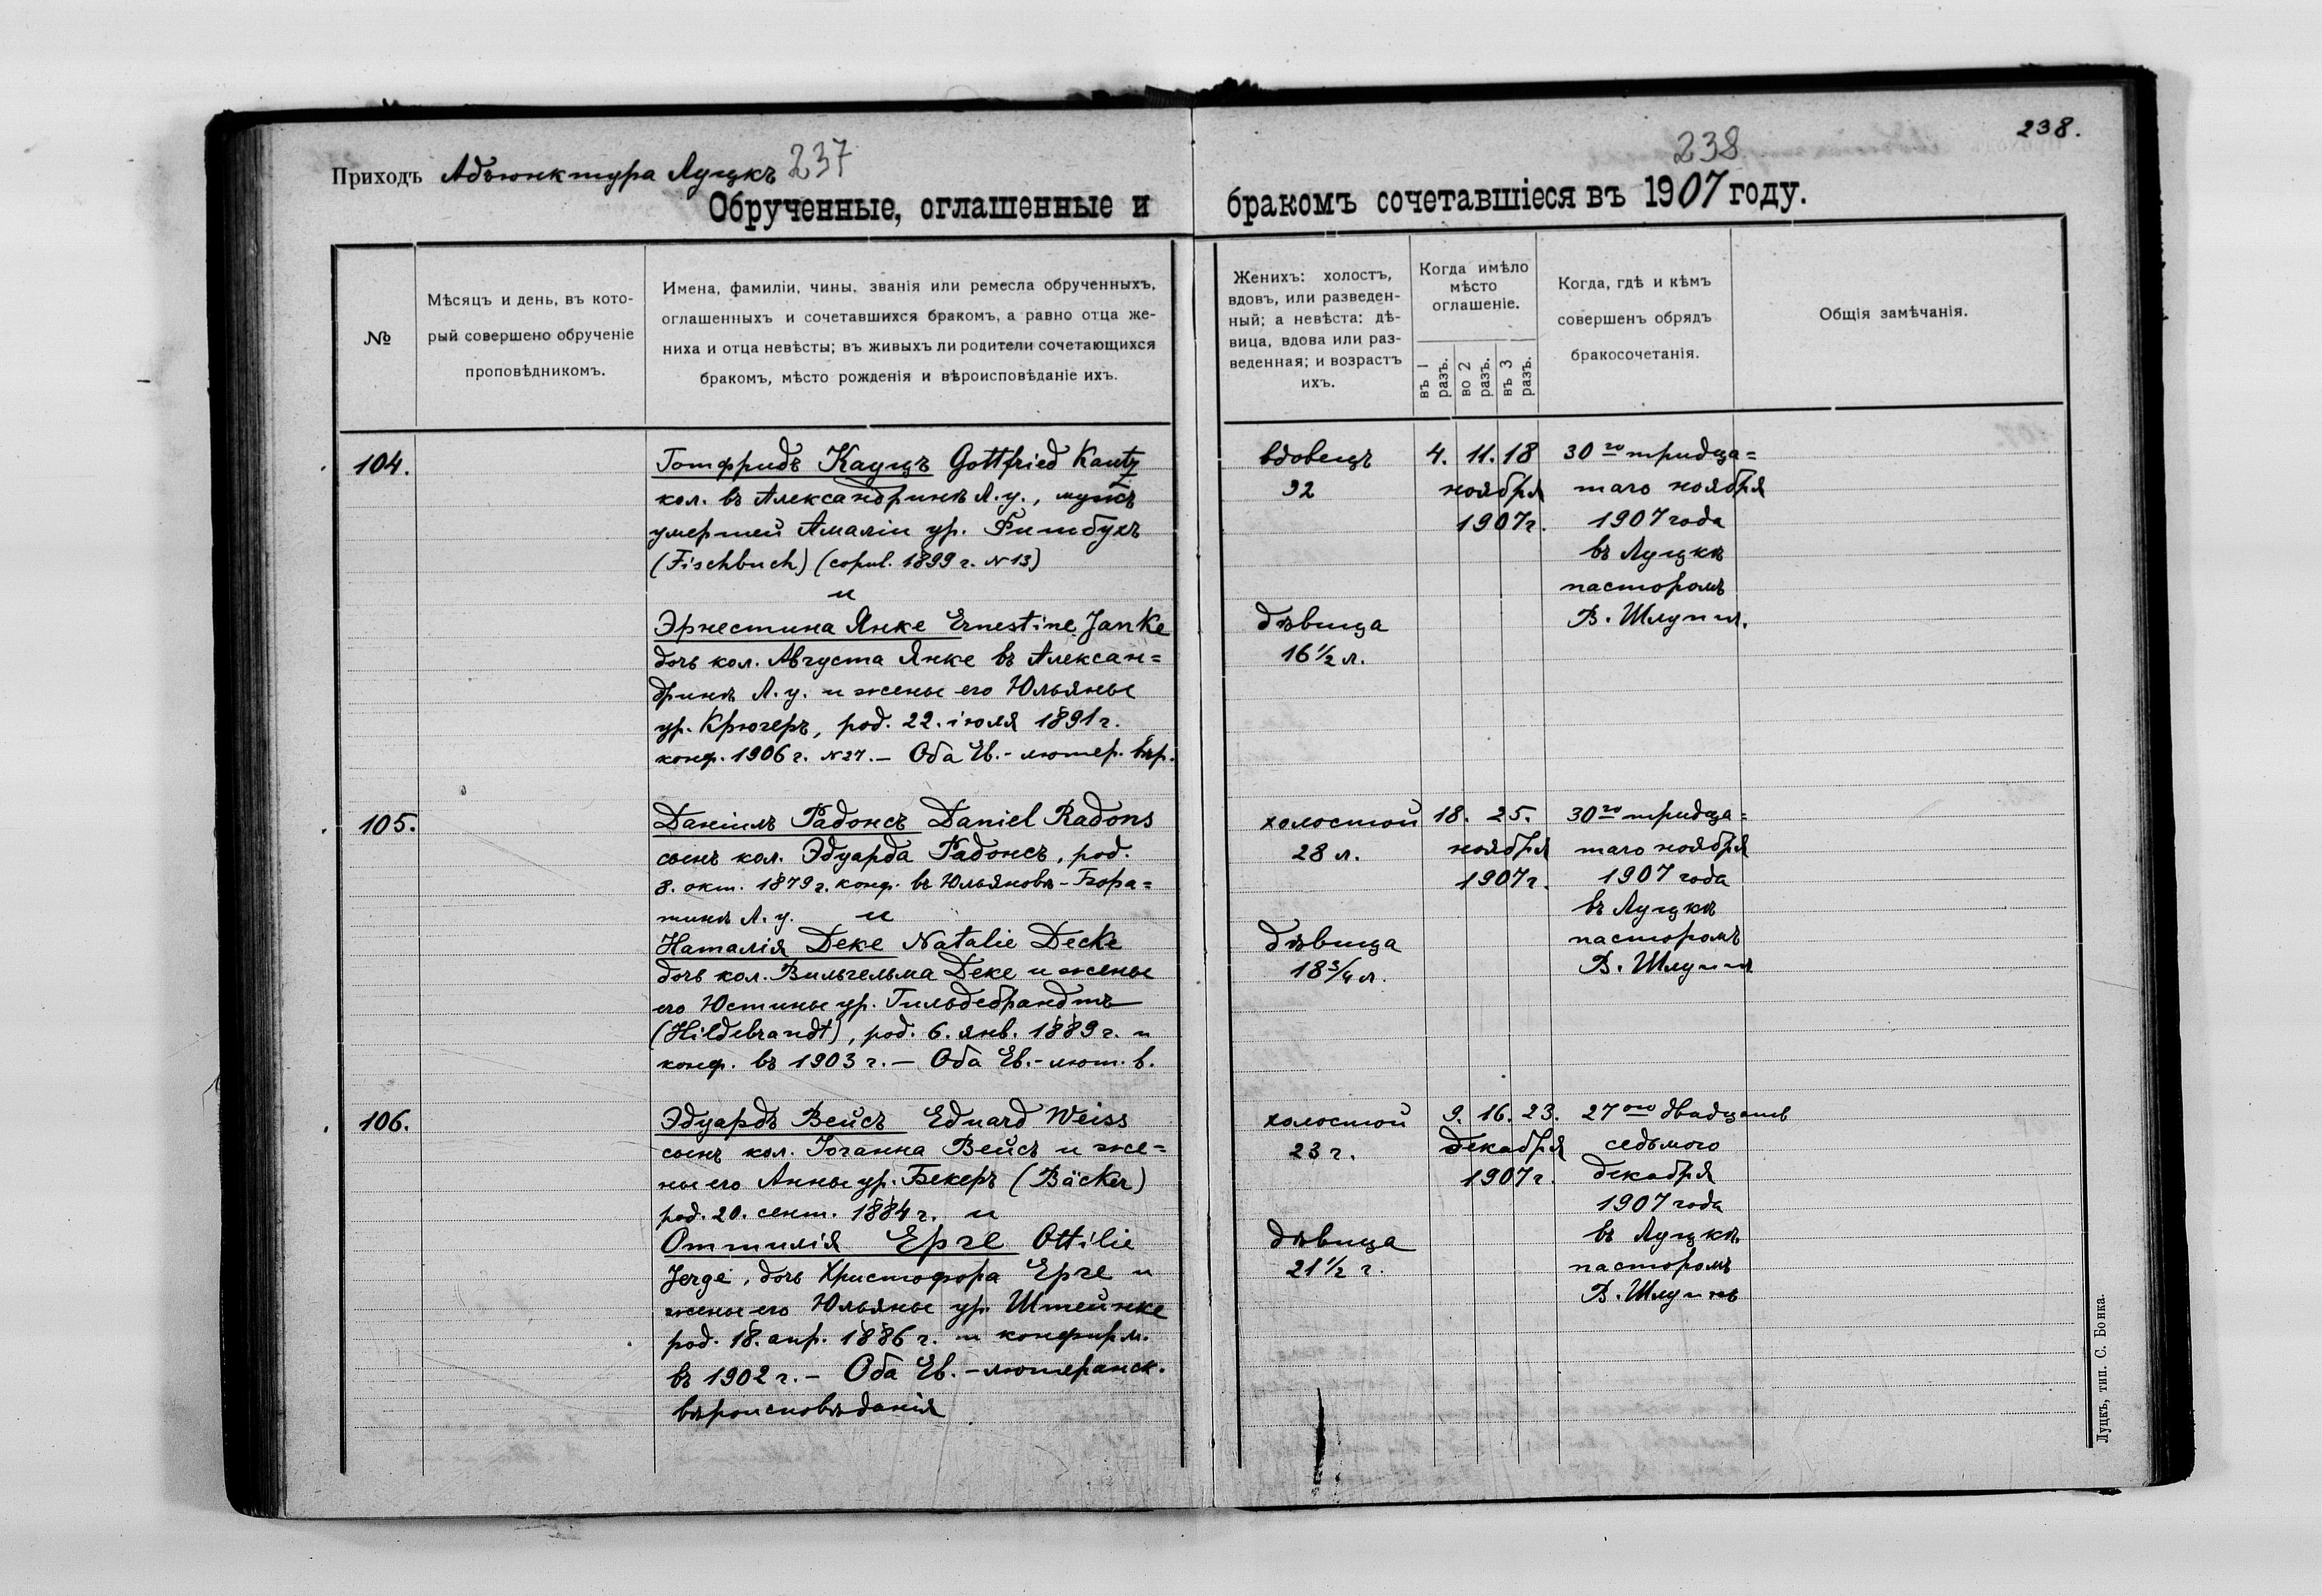 Приходъ Адъюнктура Луцкъ 237
Обрученные, оглашенные и
№
Мѣсяцъ и день, въ кото-
рый совершено обрученіе
проповѣдникомъ.
Имена, фамиліи, чины, званія или ремесла обрученныхъ,
оглашенныхъ и сочетавшихся бракомъ, а равно отца же-
ниха и отца невѣсты; въ живыхъ ли родители сочетающихся
бракомъ, мѣсто рожденія и вѣроисповѣданіе ихъ.
104.
Готфридъ Кауцъ Gottfried Kautz
кол. въ Александринѣ Л.у., мужъ
умершей Амаліи ур. Фишбухъ
(Fischbuch) (copul. 1899 г. N 13)
и
Эрнестина Янке Ernestine Janke
дочь кол. Августа Янке въ Алексан=
дринѣ Л.у. и жены его Юльяны
ур. Крюгеръ, род. 22. іюля 1891 г.
конф. 1906 г. N 27. — Оба Ев.-лютер. вѣр.
105.
Даніилъ Радонсъ Daniel Radons
сынъ кол. Эдуарда Радонсъ, род.
8. окт. 1879 г. конф. въ Юльяновѣ-Бора=
тинѣ Л.у. и
Наталія Деке Natalie Decke
дочь кол. Вильгельма Деке и жены
его Юстины ур. Гильдебрандтъ
(Hildebrandt), род. 6. янв. 1889 г. и
конф. въ 1903 г. — Оба Ев.-лют. в.
106.
Эдуардъ Вейсъ Eduard Weiss
сынъ кол. Іоганна Вейсъ и же=
ны его Анны ур. Бекеръ (Bäcker)
род. 20. сент. 1884 г. и
Оттилія Ерге Ottilie
Jerge, дочь Христофора Ерге и
жены его Юльяны ур. Штейнке
род. 18. апр. 1886 г. и конфирм.
въ 1902 г. — Оба Ев.-лютеранск.
вѣроисповѣданія
238.
238
бракомъ сочетавшіеся въ 1907 году.
Женихъ: холостъ,
вдовъ, или разведен-
ный; а невѣста: дѣ-
вица, вдова или раз-
веденная; и возрастъ
ихъ.
Когда имѣло
мѣсто
оглашеніе.
въ 1 разъ.
во 2 разъ.
въ 3 разъ.
Когда, гдѣ и кѣмъ
совершенъ обрядъ
бракосочетанія.
Общія замѣчанія.
вдовецъ 4. 11. 18 30го тридца=
32 ноября таго ноября
1907 г. 1907 года
въ Луцкѣ
пасторомъ
дѣвица В. Шлуппъ.
16 1/2 л.
холостой 18. 25. 30го тридца=
28 л. ноября таго ноября
1907 г. 1907 года
въ Луцкѣ
дѣвица пасторомъ
18 3/4 л. В. Шлуппъ
холостой 9. 16. 23. 27ого двадцать
23 г. декабря седьмого
1907 г. декабря
1907 года
дѣвица въ Луцкѣ
21 1/2 г. пасторомъ
В. Шлуппъ
Луцкъ, тип. С. Бонка.